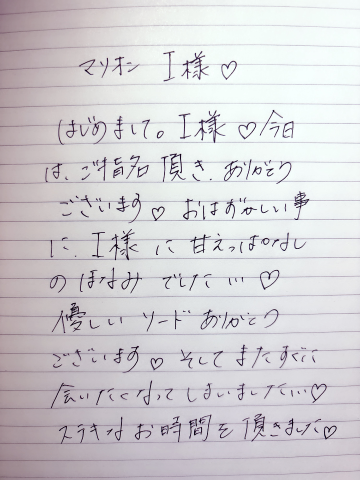 マリオン I様♡
はじめまして。I様♡今日
は、ご指名頂き、ありがとう
ございます♡ おはずかしい事
に、I様に甘えっぱなし
のほなみでした…♡
優しいソードありがとう
ございます♡ そしてまたすぐに
会いたくなってしまいました…♡
ステキなお時間を頂きました♡